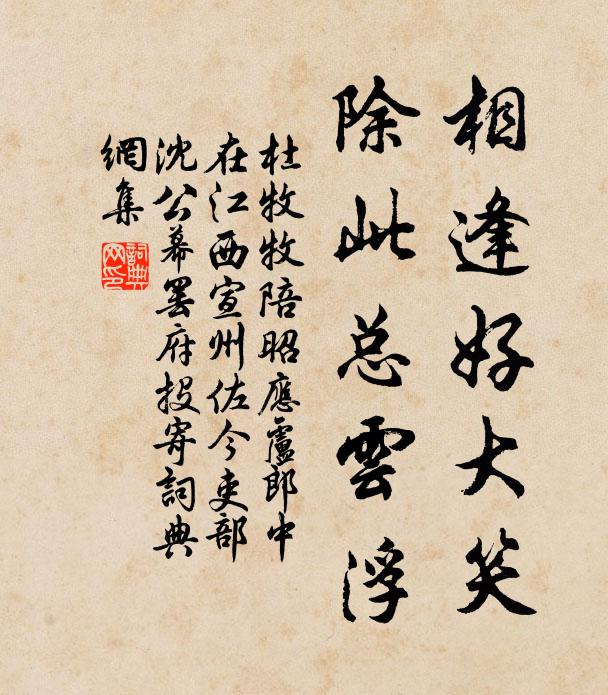 相逢好大笑
除此总雲浮
杜牧牧陪昭應盧郎中
在江西宣州佐今吏部
沈公幕罢府投寄詞典
網集
詞典網印